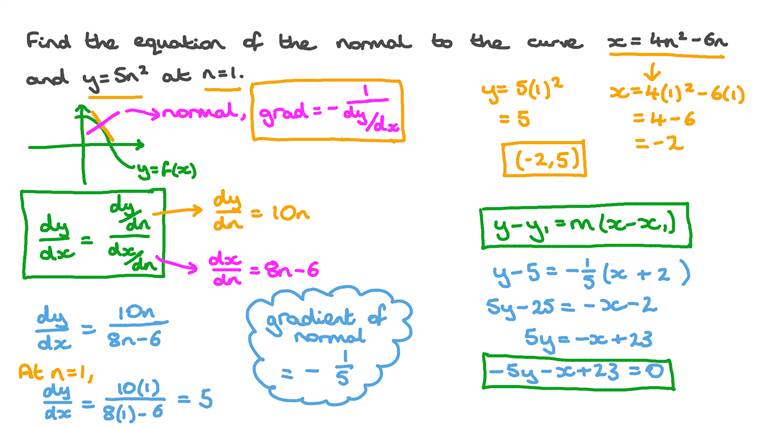 Find the equation of the normal to the curve x = 4n² - 6n
and y = 5n² at n = 1.
normal, grad = - 1/(dy/dx)
y = f(x)
y = 5(1)²
= 5
x = 4(1)² - 6(1)
= 4 - 6
= -2
(-2, 5)
dy/dx = (dy/dn)/(dx/dn)
dy/dn = 10n
dx/dn = 8n - 6
dy/dx = 10n/(8n - 6)
At n = 1,
dy/dx = 10(1)/(8(1) - 6) = 5
gradient of
normal
= - 1/5
y - y₁ = m(x - x₁)
y - 5 = -1/5(x + 2)
5y - 25 = -x - 2
5y = -x + 23
-5y - x + 23 = 0